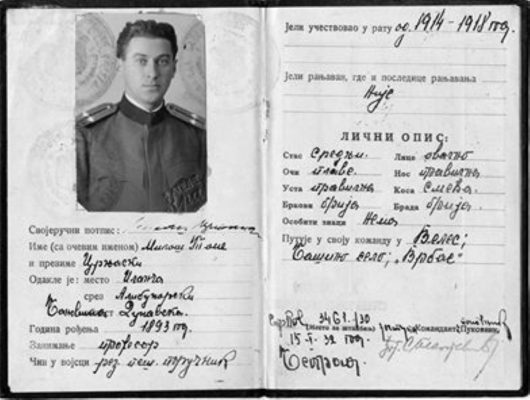 Својеручни потпис:
Име (са очевим именом) Милош Томе
и презиме Црњаски
Одакле је: место Иланџа
срез Алибунарски
Бановина Дунавска.
Година рођења 1893 год.
Занимање професор
Чин у војсци рез. пеш. поручник
Јели учествовао у рату од 1914-1918 год.
Јели рањаван, где и последице рањавања
Није
ЛИЧНИ ОПИС:
Стас средњи. Лице овално
Очи плаве. Нос правилан
Уста правилна Коса смеђа.
Бркови брија Брада брија.
Особити знаци Нема
Путује у своју команду у Велес;
Башино село; „Врбас"
3461/30
(Место за штамбиљ) Командант, Пуковник,
15-I-32 год.
Београд.